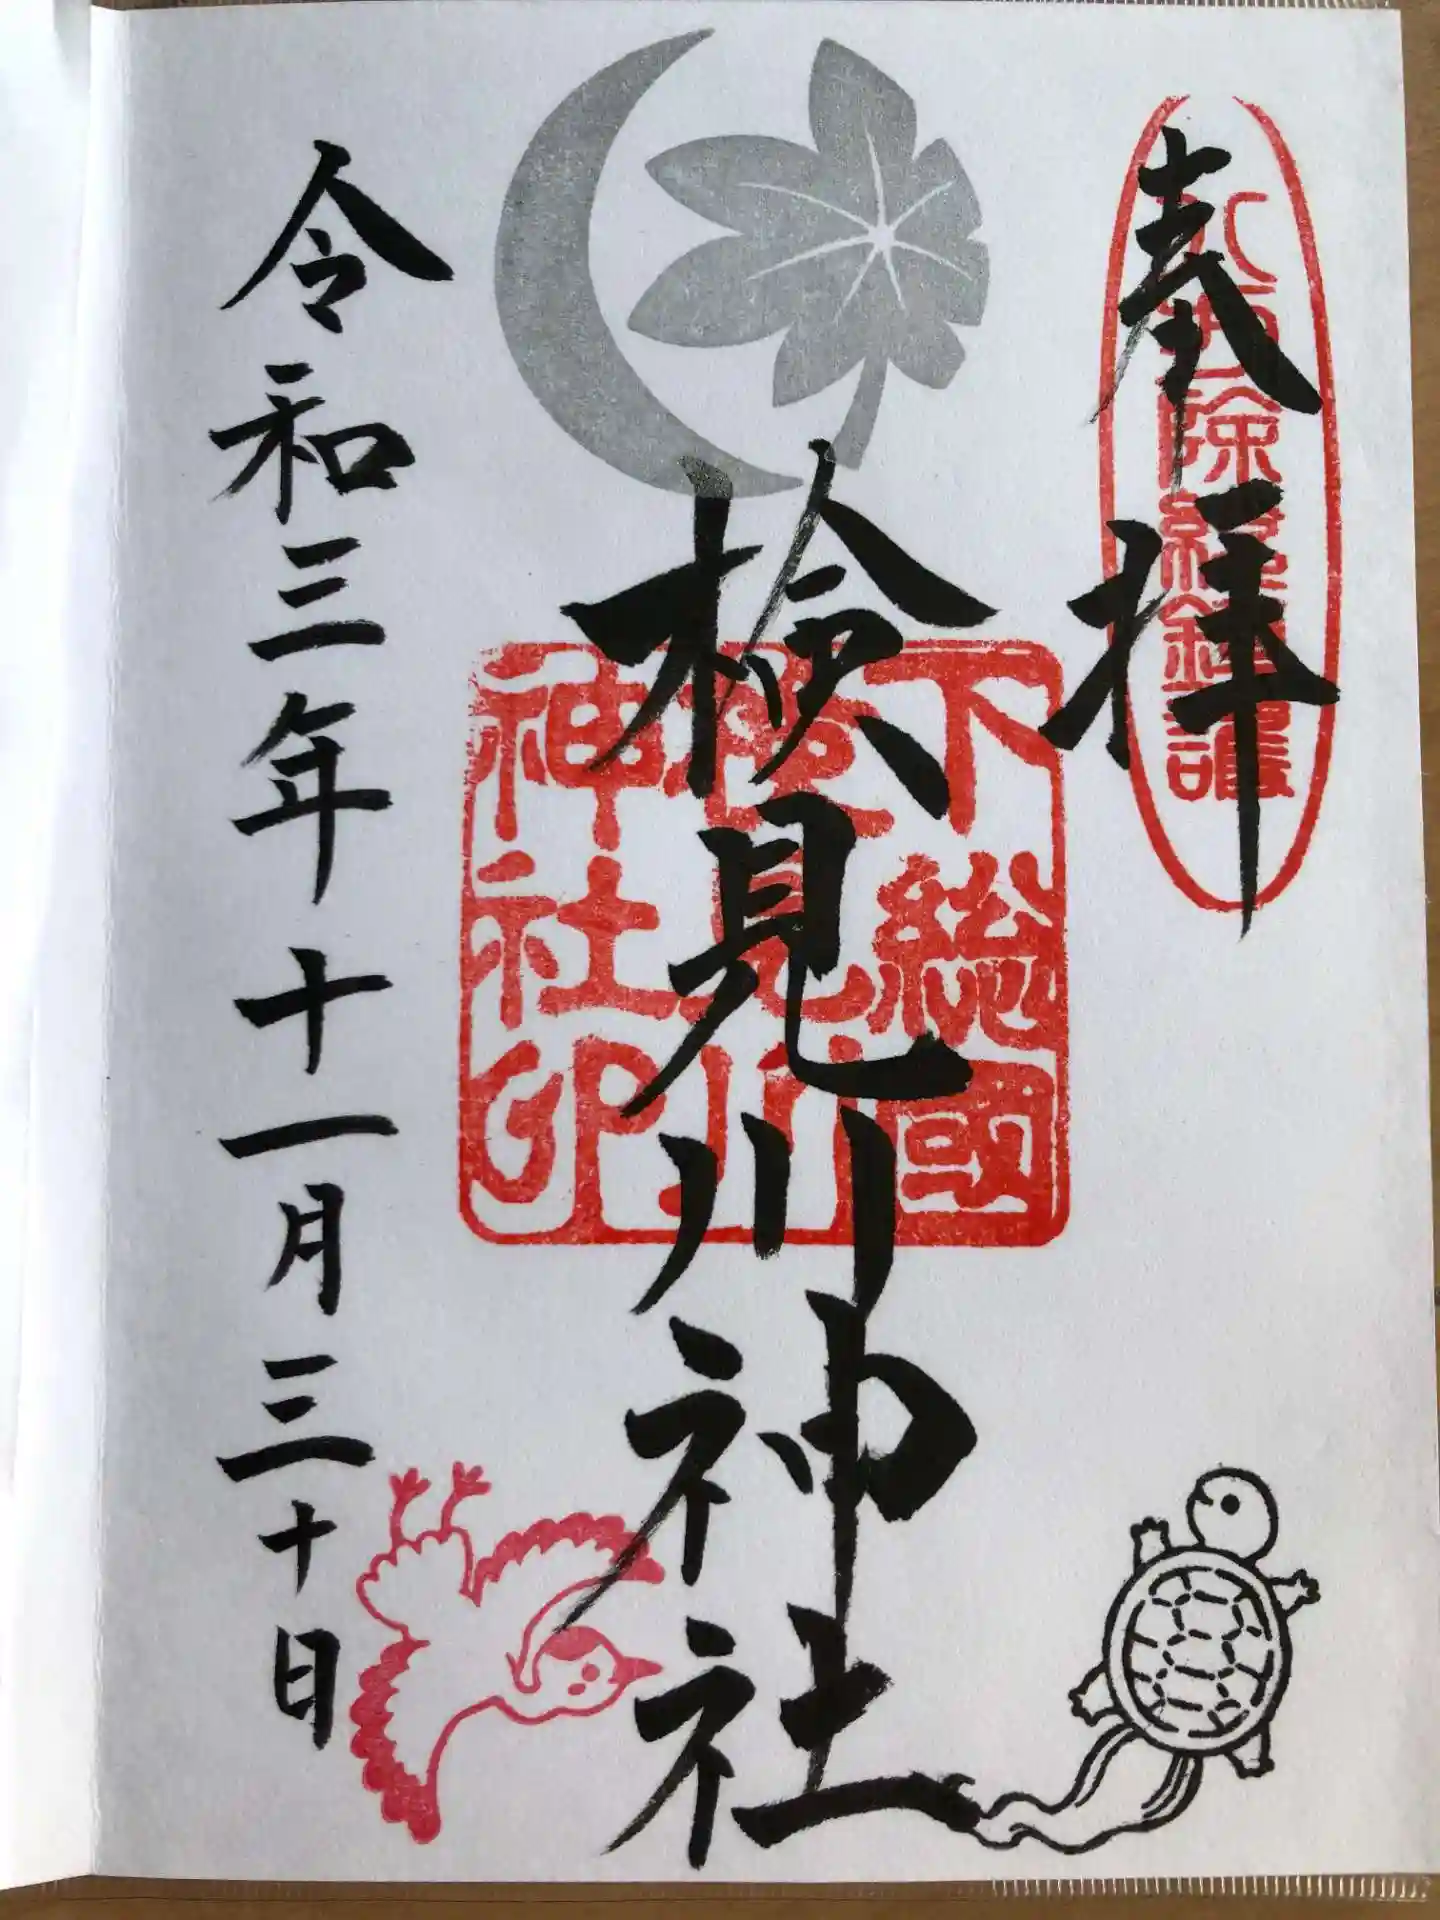 奉拝
八方除総鎮護
検見川神社
下総國
検見川
神社印
令和三年十一月三十日